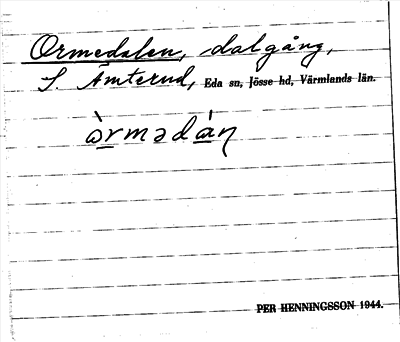 Ormedalen, dalgång,
S. Ämterud, Eda sn, Jösse hd, Värmlands län.
ὼrmədάη
PER HENNINGSSON 1944.